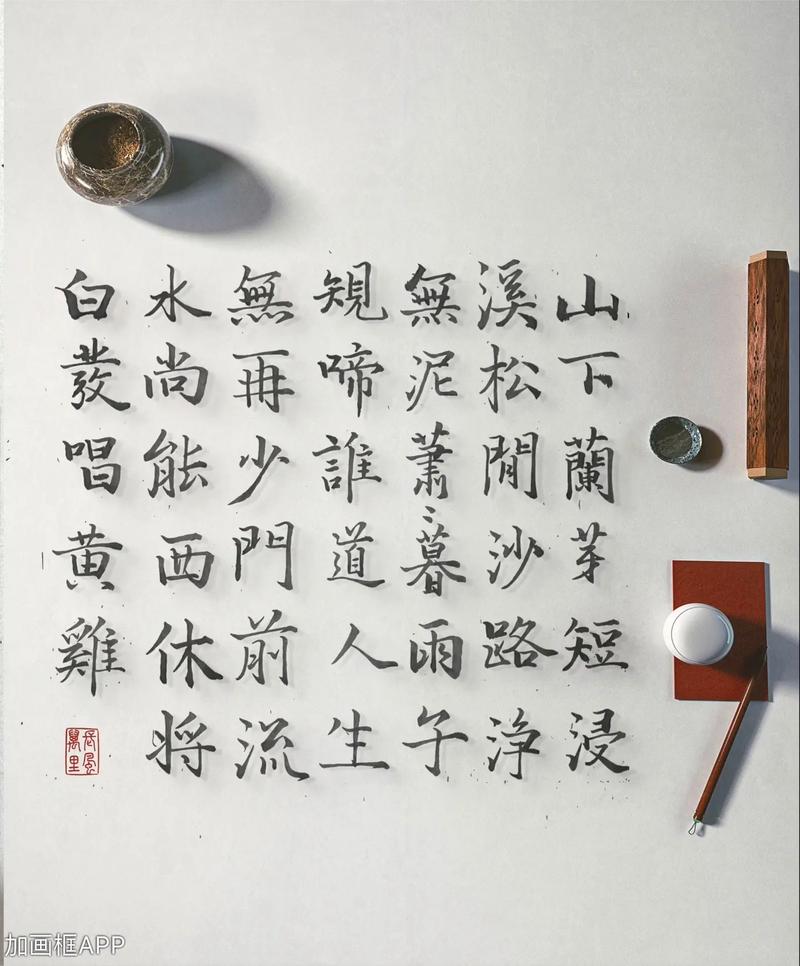 山下蘭芽短浸
溪松閒沙路淨
無泥蕭〻暮雨子
規啼誰道人生
無再少門前流
水尚能西休將
白發唱黄雞
長風萬里
加画框APP